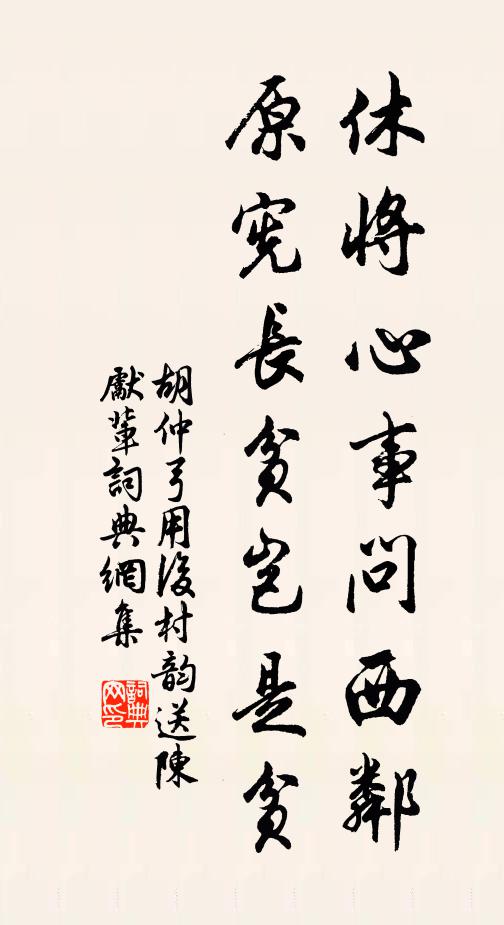 休將心事問西鄰
原憲長貧豈是貧
胡仲弓用後村韵送陳
獻輩詞典網集
詞典
网印